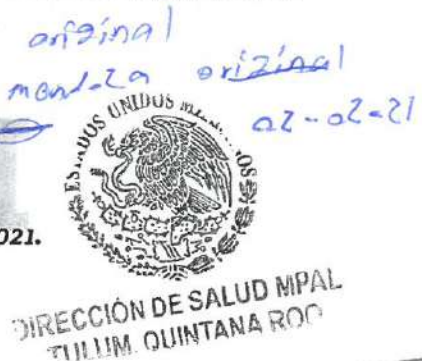 original
mendoza original
02-02-21
ESTADOS UNIDOS ME
OS
021.
DIRECCIÓN DE SALUD MPAL
TULUM, QUINTANA ROO